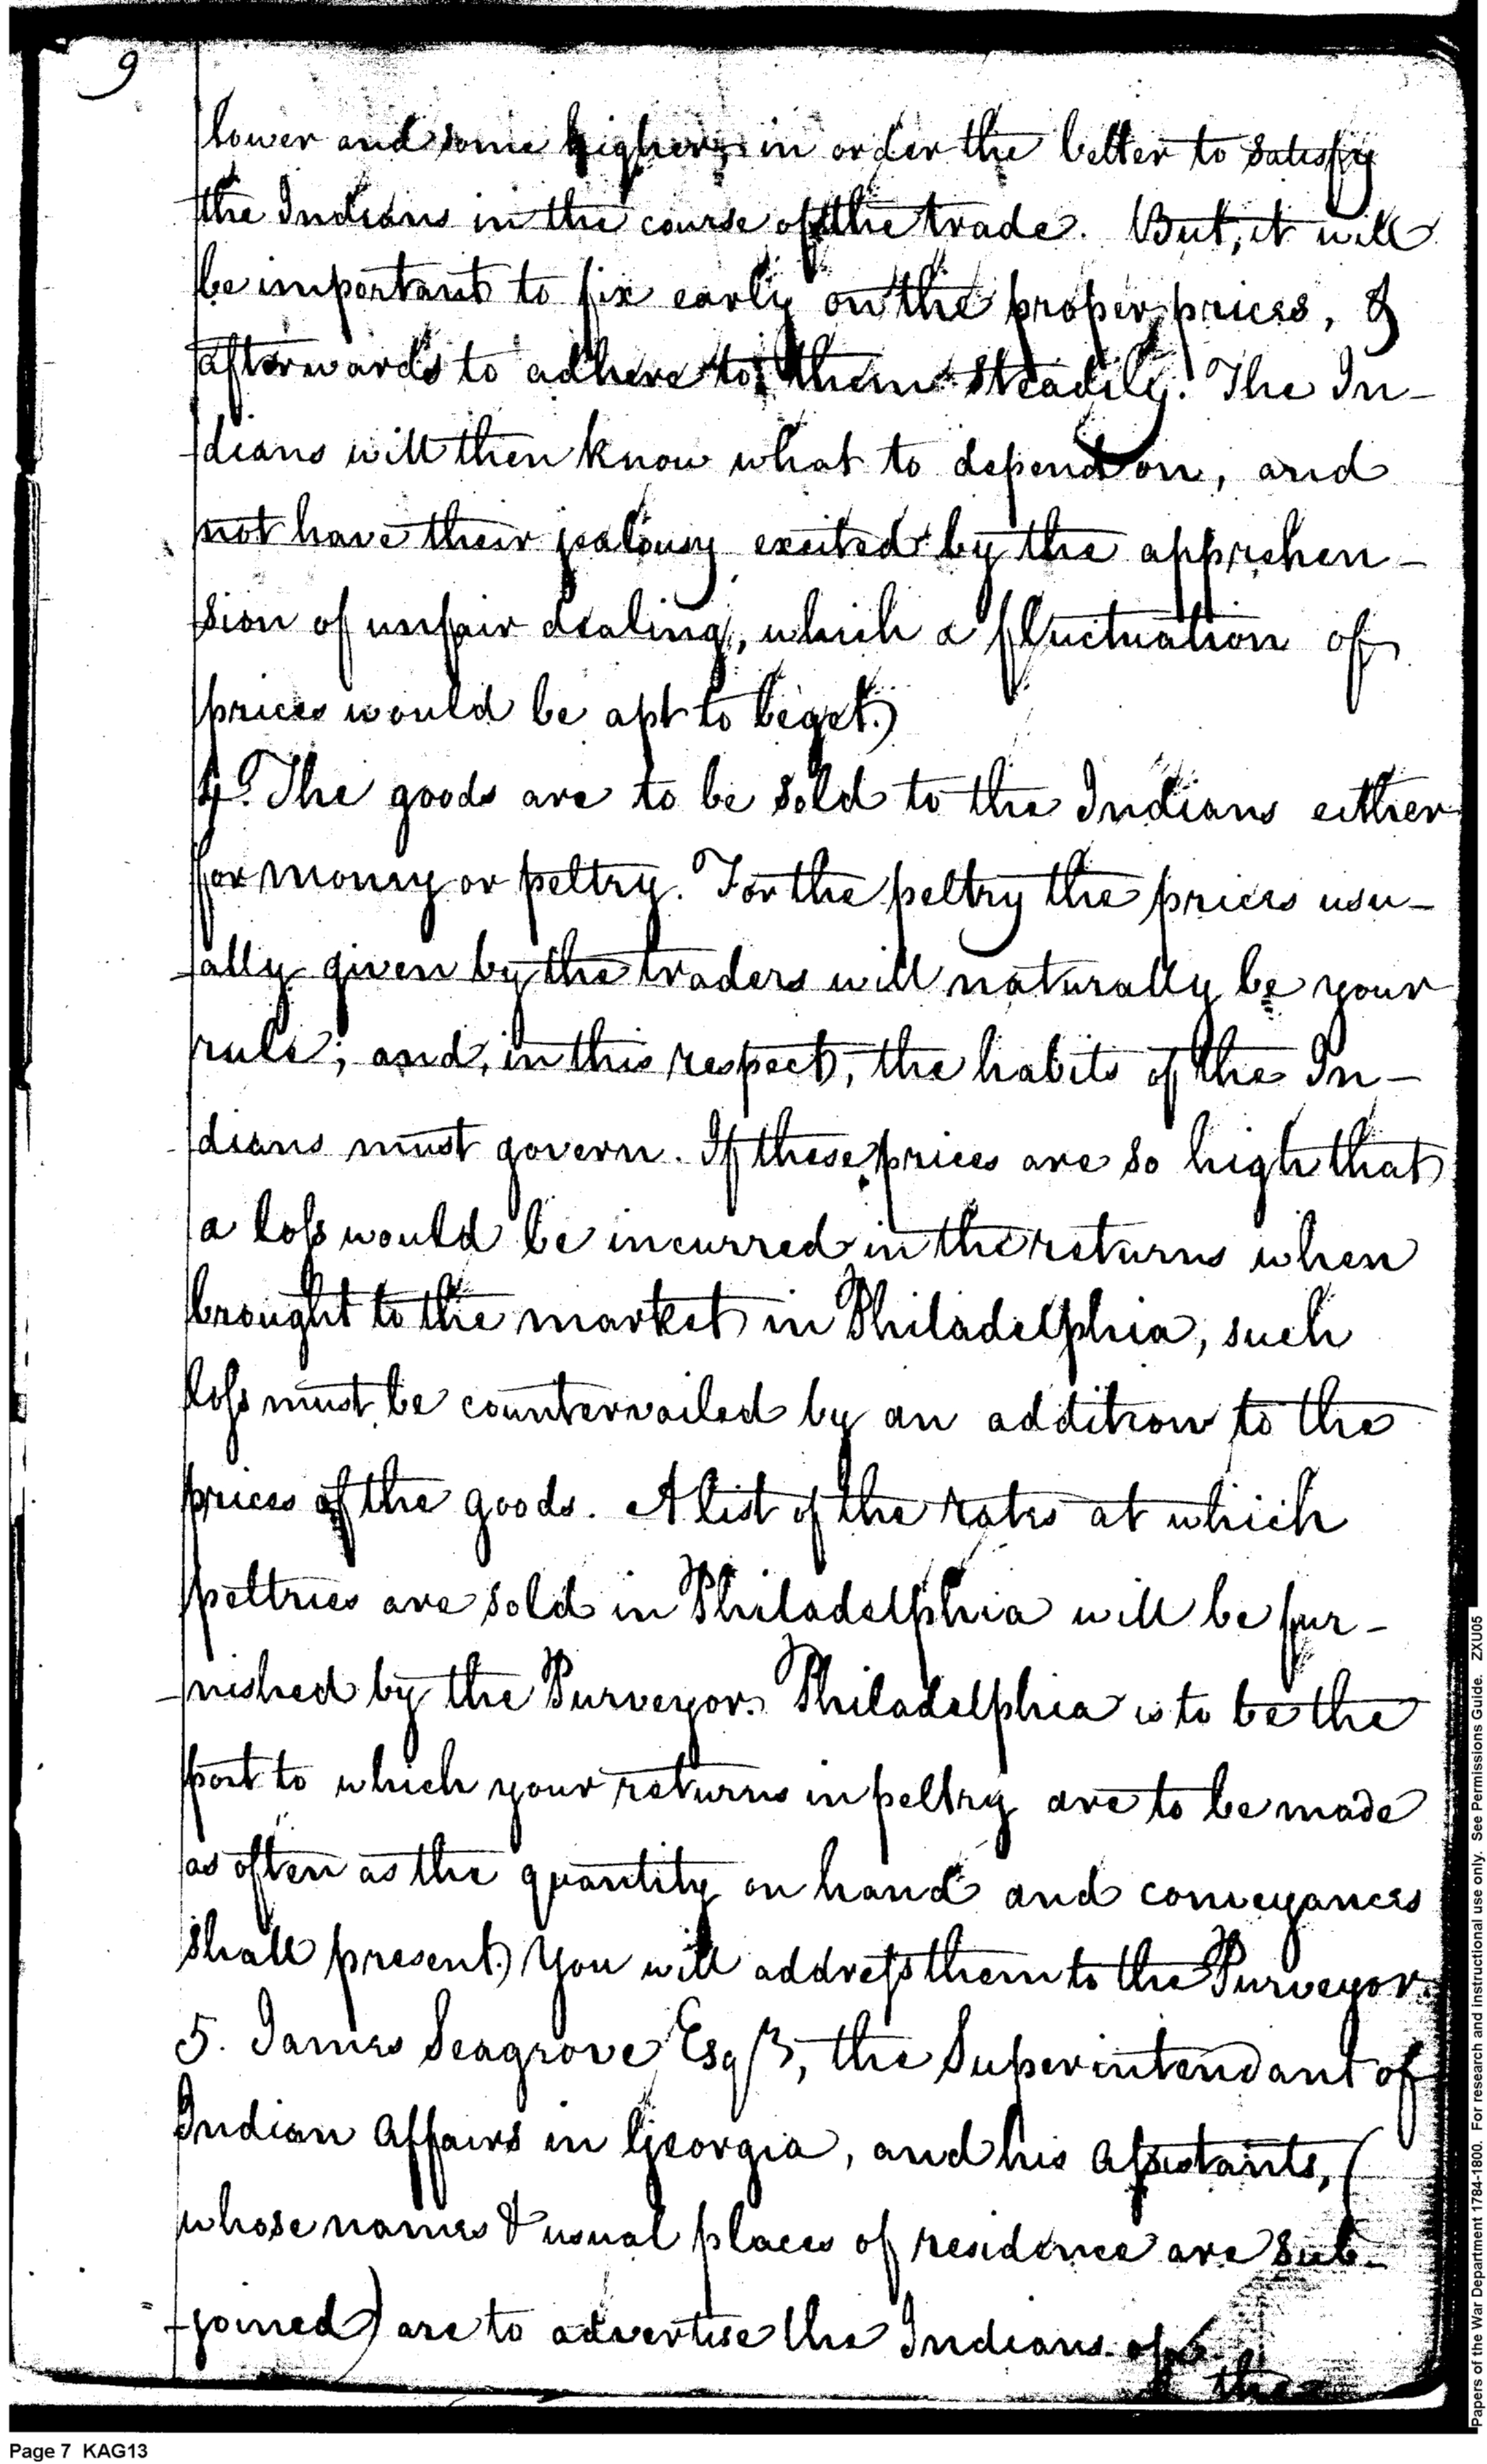 9
lower and some higher, in order the better to satisfy
the Indians in the course of the trade. But, it will
be important to fix early on the proper prices, &
afterwards to adhere to them steadily. The In-
dians will then know what to depend on, and
not have their jealousy excited by the apprehen-
sion of unfair dealing, which a fluctuation of
prices would be apt to beget.)
4. The goods are to be sold to the Indians either
for money or peltry. For the peltry the prices usu-
ally given by the traders will naturally be your
rule; and, in this respect, the habits of the In-
dians must govern. If these prices are so high that
a loss would be incurred in the returns when
brought to the market in Philadelphia, such
loss must be countervailed by an addition to the
prices of the goods. A list of the rates at which
peltries are sold in Philadelphia will be fur-
nished by the Purveyor. Philadelphia is to be the
port to which your returns in peltry are to be made
as often as the quantity on hand and conveyances
shall present.) You will address them to the Purveyor.
5. James Seagrove Esqr, the Superintendant of
Indian Affairs in Georgia, and his Assistants, (
whose names & usual places of residence are sub-
joined) are to advertise the Indians of
the
Page 7 KAG13
Papers of the War Department 1784-1800. For research and instructional use only. See Permissions Guide. ZXU05